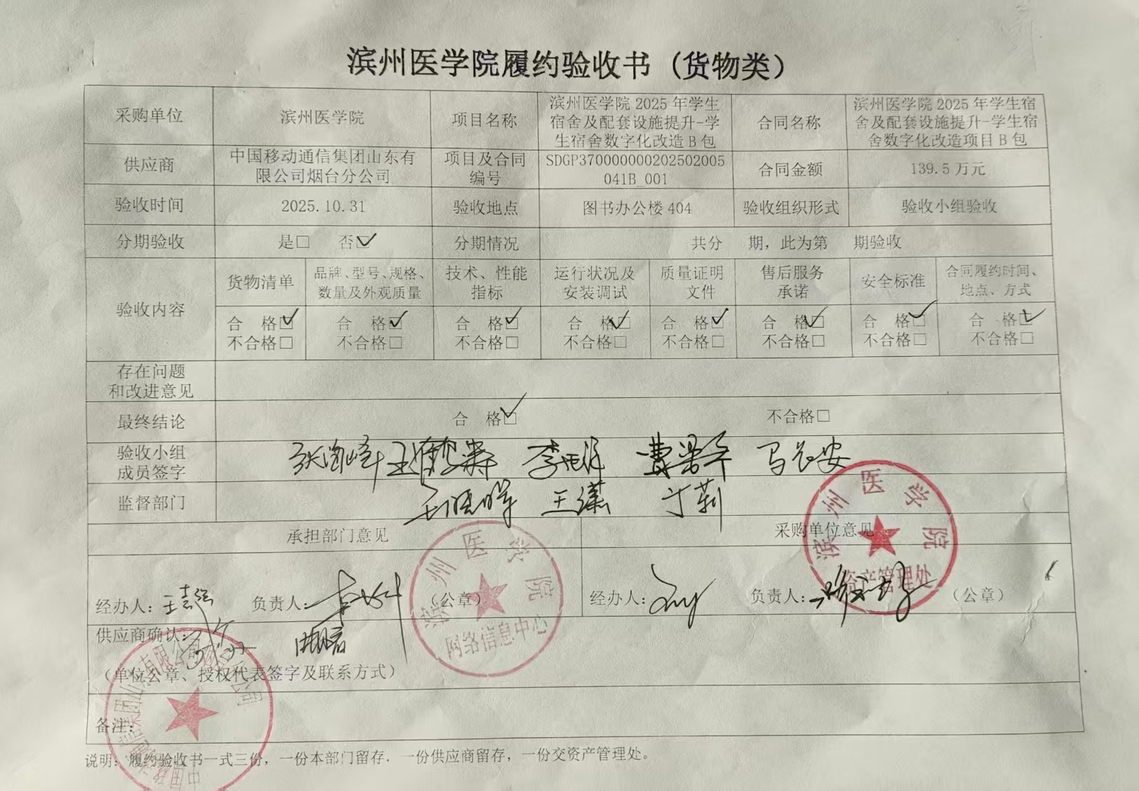 滨州医学院履约验收书（货物类）
采购单位 滨州医学院 项目名称 滨州医学院 2025 年学生宿舍及配套设施提升-学生宿舍数字化改造 B 包 合同名称 滨州医学院 2025 年学生宿舍及配套设施提升-学生宿舍数字化改造项目 B 包
供应商 中国移动通信集团山东有限公司烟台分公司 项目及合同编号 SDGP370000000202502005041B_001 合同金额 139.5 万元
验收时间 2025.10.31 验收地点 图书办公楼 404 验收组织形式 验收小组验收
分期验收 是□ 否☑ 分期情况 共分 期，此为第 期验收
验收内容 货物清单 品牌、型号、规格、数量及外观质量 技术、性能指标 运行状况及安装调试 质量证明文件 售后服务承诺 安全标准 合同履约时间、地点、方式
合 格☑ 合 格☑ 合 格☑ 合 格☑ 合 格☑ 合 格☑ 合 格☑ 合 格☑
不合格□ 不合格□ 不合格□ 不合格□ 不合格□ 不合格□ 不合格□ 不合格□
存在问题和改进意见
最终结论 合 格☑ 不合格□
验收小组成员签字
监督部门 王潇 丁莉
承担部门意见 采购单位意见
经办人： 负责人： （公章） 经办人： 负责人： （公章）
滨州医学院
网络信息中心
滨州医学院
资产管理处
供应商确认：
（单位公章、授权代表签字及联系方式）
备注：
说明：履约验收书一式三份，一份本部门留存，一份供应商留存，一份交资产管理处。